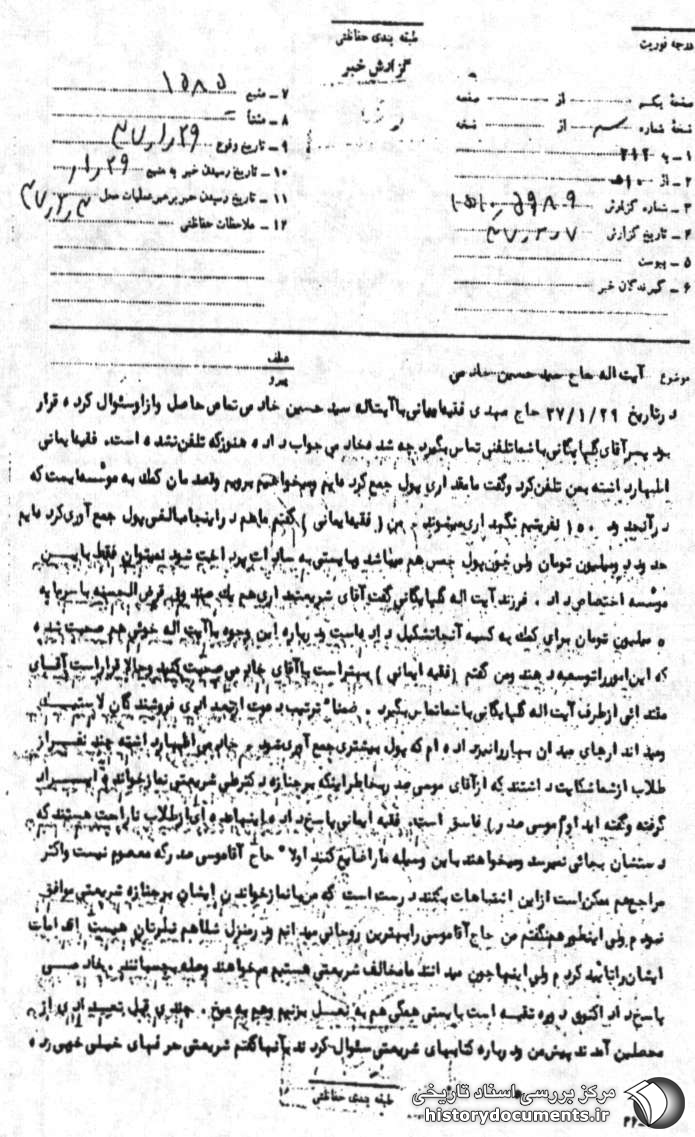 طبقه بندی حفاظتی
گزارش خبر
درجه فوریت
صفحه یکم از صفحه
نسخه شماره از نسخه
۱ - به ۳۱۲
۲ - از
۳ - شماره گزارش
۴ - تاریخ گزارش
۵ - پیوست
۶ - گیرندگان خبر
۷ - منبع ۱۵۸۵
۸ - منشأ
۹ - تاریخ وقوع
۱۰ - تاریخ رسیدن خبر به منبع
۱۱ - تاریخ رسیدن خبر برهبر عملیات محل
۱۲ - ملاحظات حفاظتی
موضوع آیت اله حاج سید حسین خادمی
عطف
پیرو
در تاریخ ۳۷/۱/۲۹ حاج مهدی فقیه ایمانی با آیت اله سید حسین خادمی تماس حاصل و از او سئوال کرده قرار
بود پسر آقای گلپایگانی با شما تلفنی تماس بگیرد چه شد خادمی جواب داده هنوز که تلفن نشده است. فقیه ایمانی
اظهار داشته بمن تلفن کرد و گفت ما مقداری پول جمع کرده ایم و میخواهیم برویم کمک به موسسه ایست که
در آنجا نگهداری میشوند . من ( فقیه ایمانی ) گفتم ما هم در اینجا مبالغی پول جمع آوری کرده ایم
حدود دو میلیون تومان ولی چون پول خمس هم میباشد و بایستی به سادات پرداخت شود نمیتوان فقط باین
موسسه اختصاص داد . فرزند آیت اله گلپایگانی گفت آقای شریعتمداری هم یک صندوق قرض الحسنه با سرمایه
۵ میلیون تومان برای کمک به کسبه آنجا تشکیل داده است و درباره این وجوه با آیت اله خوئی هم صحبت شده
که این امور را توسعه دهند و من گفتم (فقیه ایمانی ) بهتر است با آقای خادمی صحبت کنید و حالا قرار است آقای
از طرف آیت اله گلپایگانی با شما تماس بگیرد . ضمنا ترتیب دعوت از تعدادی فروشندگان لاستیک
و میدان دارهای میدان را نیز داده ام که پول بیشتری جمع آوری شود . خادمی اظهار داشته چند نفر از
طلاب از شما شکایت داشتند که از آقای موسی صدر بخاطر اینکه بر جنازه دکتر علی شریعتی نماز خوانده ایراد
گرفته و گفته اید او (موسی صدر) فاسق است. فقیه ایمانی پاسخ داده اینها عده ای از طلاب ناراحت هستند که
دستشان بجائی نمیرسد و میخواهند باین وسیله ما را ضایع کنند اولا حاج آقا موسی صدر که معصوم نیست و اکثر
مراجع هم ممکن است از این اشتباهات بکنند درست است که من با نماز خواندن ایشان بر جنازه شریعتی موافق
نبودم ولی اینطور هم نگفتم من حاج آقا موسی را بهترین روحانی میدانم و در منزل شما هم نظرتان هست اقدامات
ایشان را تائید کردم ولی اینها چون میدانند ما مخالف شریعتی هستیم میخواهند وصله بچسبانند . خادمی
پاسخ داد اکنون دوره تقیه است بایستی همگی هم به نعل بزنیم و هم به میخ . چندی قبل تعدادی از
محصلین آمدند پیش من و درباره کتابهای شریعتی سئوال کردند بآنها گفتم شریعتی حرفهای خیلی خوبی زده
طبقه بندی حفاظتی
مرکز بررسی اسناد تاریخی
historydocuments.ir